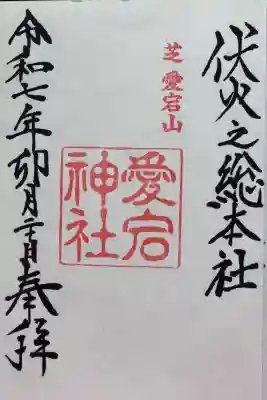 伏火之総本社
芝愛宕山
愛宕
神社
令和七年卯月二日奉拝